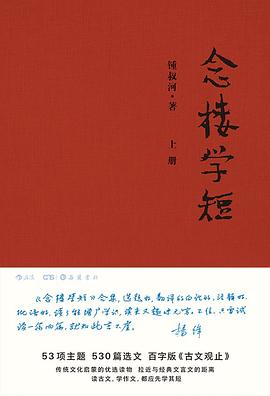 念楼学短
锺叔河·著
上册
后浪 岳麓书社
《念楼学短》合集,选题好,翻译的白话好,注释好,
批语好,读了能增广学识,读来又趣味无穷。不信,只需试
读一篇两篇,就知此言不虚。
杨绛
53项主题 530篇选文 百字版《古文观止》
传统文化启蒙的优选读物 拉近与经典文言文的距离
读古文,学作文,都应先学其短